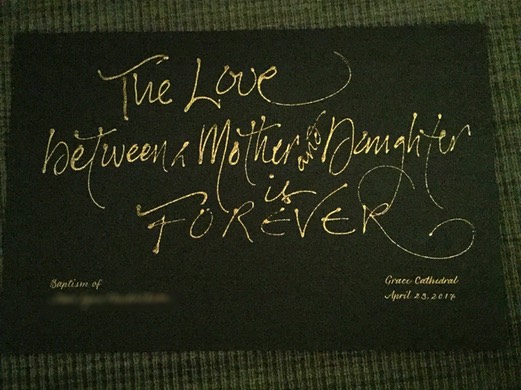 The Love
between a Mother and Daughter
is
FOREVER
Baptism of
Grace Cathedral
April 23, 2017